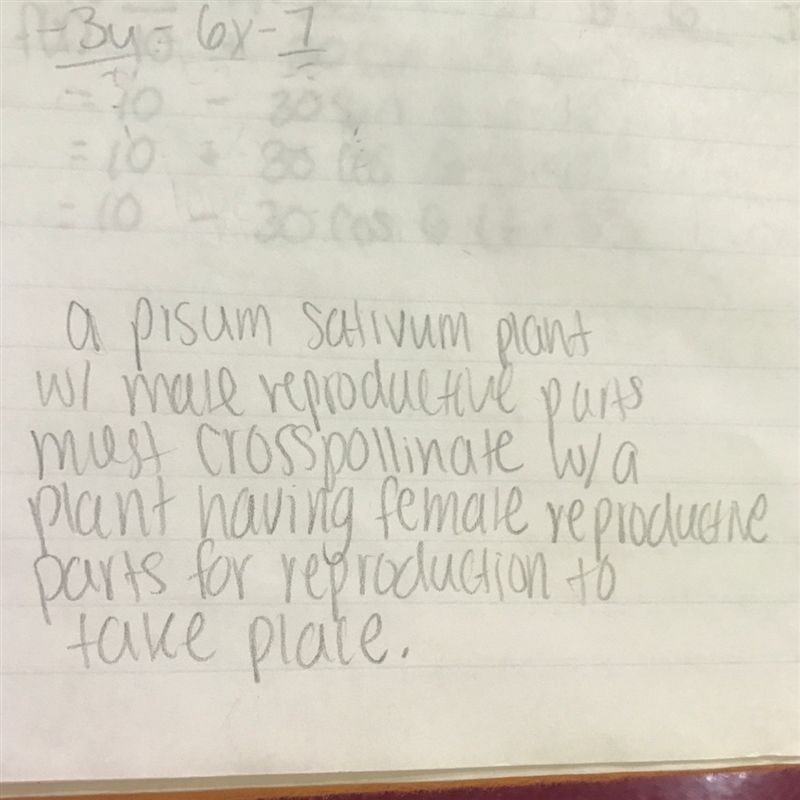 -3y = 6x - 7
= 10 - 30
= 10 + 30 cos
= 10 - 30 cos
a pisum sativum plant
w/ male reproductive parts
must crosspollinate w/a
plant having female reproductive
parts for reproduction to
take place.